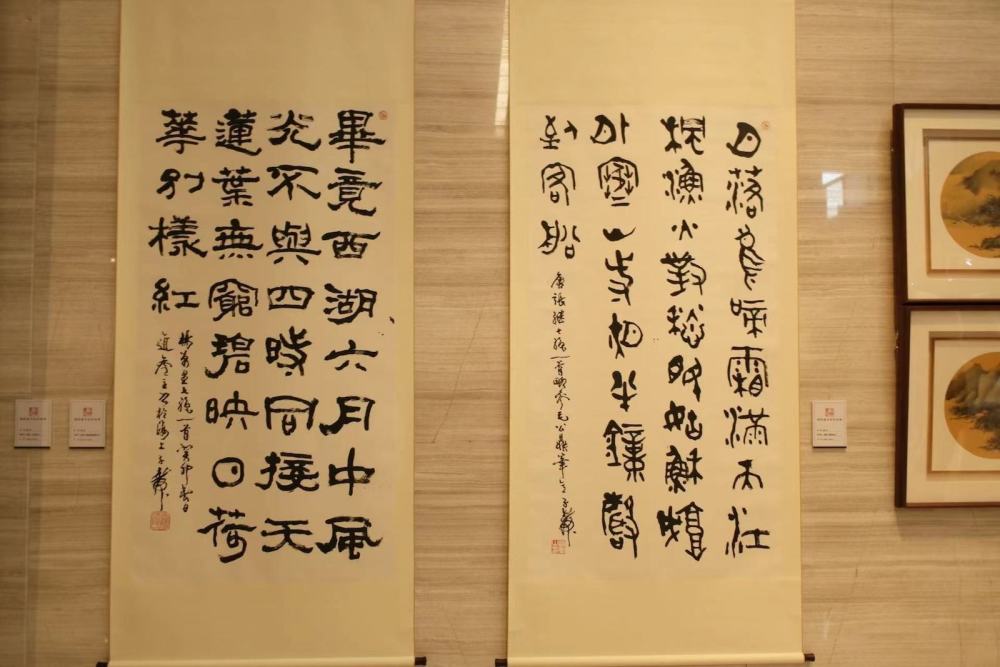 畢竟西湖六月中風
光不與四時同接天
蓮葉無窮碧映日荷
華別樣紅
楊萬里七絕一首癸卯春日
月落烏啼霜滿天江
楓漁火對愁眠姑蘇城
外寒山寺夜半鐘聲
到客船
唐張繼七絕一首